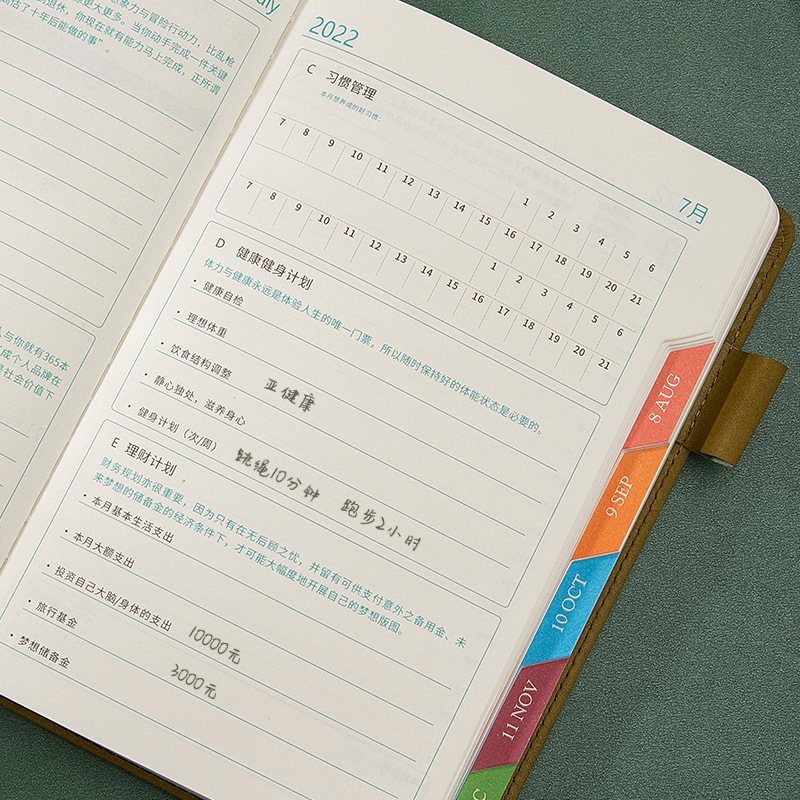 uly
想象力与冒险行动力，比乱枪
更大更多。当你动手完成一件关键
退休，你现在就有能力马上完成，正所谓
高估了十年后能做的事"。
人与你就有365本
成个人品牌在
是社会价值下
2022
7月
C 习惯管理
本月想养成的好习惯：
1 2 3 4 5 6
7 8 9 10 11 12 13 14 15 16 17 18 19 20 21
1 2 3 4 5 6
7 8 9 10 11 12 13 14 15 16 17 18 19 20 21
D 健康健身计划
体力与健康永远是体验人生的唯一门票，所以随时保持好的体能状态是必要的。
• 健康自检
• 理想体重
• 饮食结构调整 亚健康
• 静心独处，滋养身心
• 健身计划（次/周） 跳绳10分钟 跑步2小时
E 理财计划
财务规划亦很重要，因为只有在无后顾之忧，并留有可供支付意外之备用金、未
来梦想的储备金的经济条件下，才可能大幅度地开展自己的梦想版图。
• 本月基本生活支出
• 本月大额支出
• 投资自己大脑/身体的支出 10000元
• 旅行基金 3000元
• 梦想储备金
8 AUG
9 SEP
10 OCT
11 NOV
C